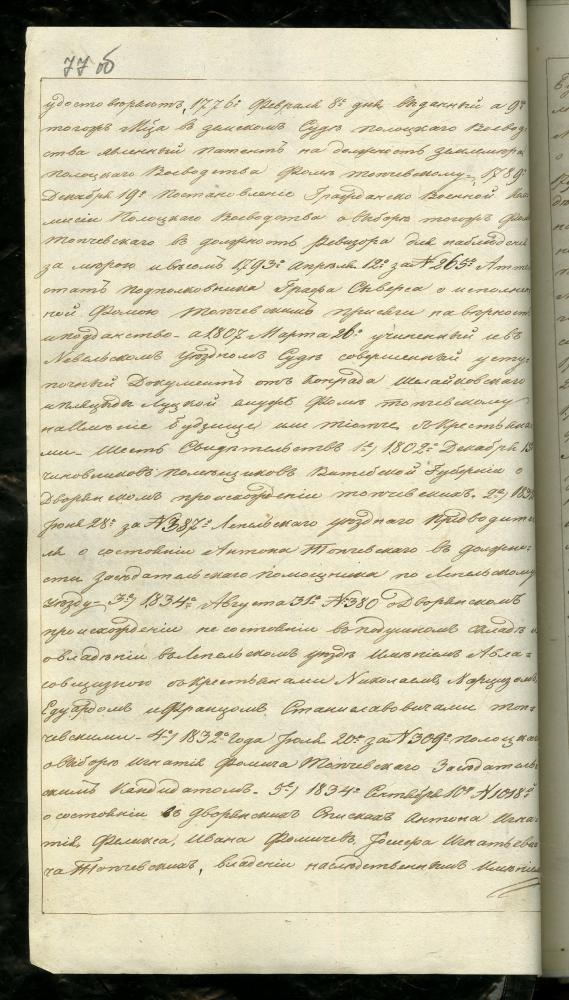 77 об
удостовѣряютъ, 1776го Февраля 8го дня выданный а 9го
тогожъ М-ца въ земскомъ Судѣ Полоцкаго Воевод-
ства явленный патентъ на должность землемѣра
Полоцкаго Воеводства Фомѣ Топчевскому, 1789го
Декабря 19го Постановленіе Гражданско Военной Ком-
мисіи Полоцкаго Воеводства о выборѣ тогожъ Фомы
Топчевскаго въ должность Ревизора для наблюденія
за мѣрою и вѣсомъ 1793го Апрѣля 12го за № 265мъ Атте-
статъ подполковника Графа Сиверса о исполнен-
ной Фомою Топчевскимъ присяги на вѣрность
и подданство – а 1807 Марта 26го учиненный и въ
Невельскомъ уѣздномъ Судѣ совершенный усту-
почный Документъ отъ Конрада Шелайковскаго
и Плациды Луцкой онужъ Фомѣ Топчевскому
на Имѣніе Будзище или тістье съ крестьяна-
ми – шесть Свидѣтельствъ 1е) 1802го Декабря 15го
чиновниковъ помѣщиковъ Витебской Губерніи о
Дворянскомъ происхожденіи Топчевскихъ. 2е) 183
Іюня 28го за № 387мъ Лепельскаго уѣзднаго Предводите-
ля о состояніи Антона Топчевскаго въ должно-
сти засѣдательскаго помощника по Лепельскому
уѣзду – 3е) 1834го Августа 31го № 380 о Дворянскомъ
происхожденіи не состояніи въ подушномъ окладѣ и
о владѣніи въ Лепельскомъ уѣздѣ Имѣніемъ Авла-
совщизною съ крестьянами Николаемъ, Нарцизомъ,
Едуардомъ и Францомъ Станиславовичами Топ-
чевскими – 4е) 1832го года Іюля 20го за № 309мъ Полоцкаго
о выборѣ Игнатія Фомича Топчевскаго Засѣдатель-
скимъ Кандидатомъ. 5е) 1834го Октября 10го № 1018й
о состояніи въ Дворянскихъ Спискахъ Антона Игна-
тія, Феликса, Ивана Фомичевъ, Іосифа Игнатьеви-
ча Топчевскихъ, владеніи наслѣдственнымъ Имѣніемъ